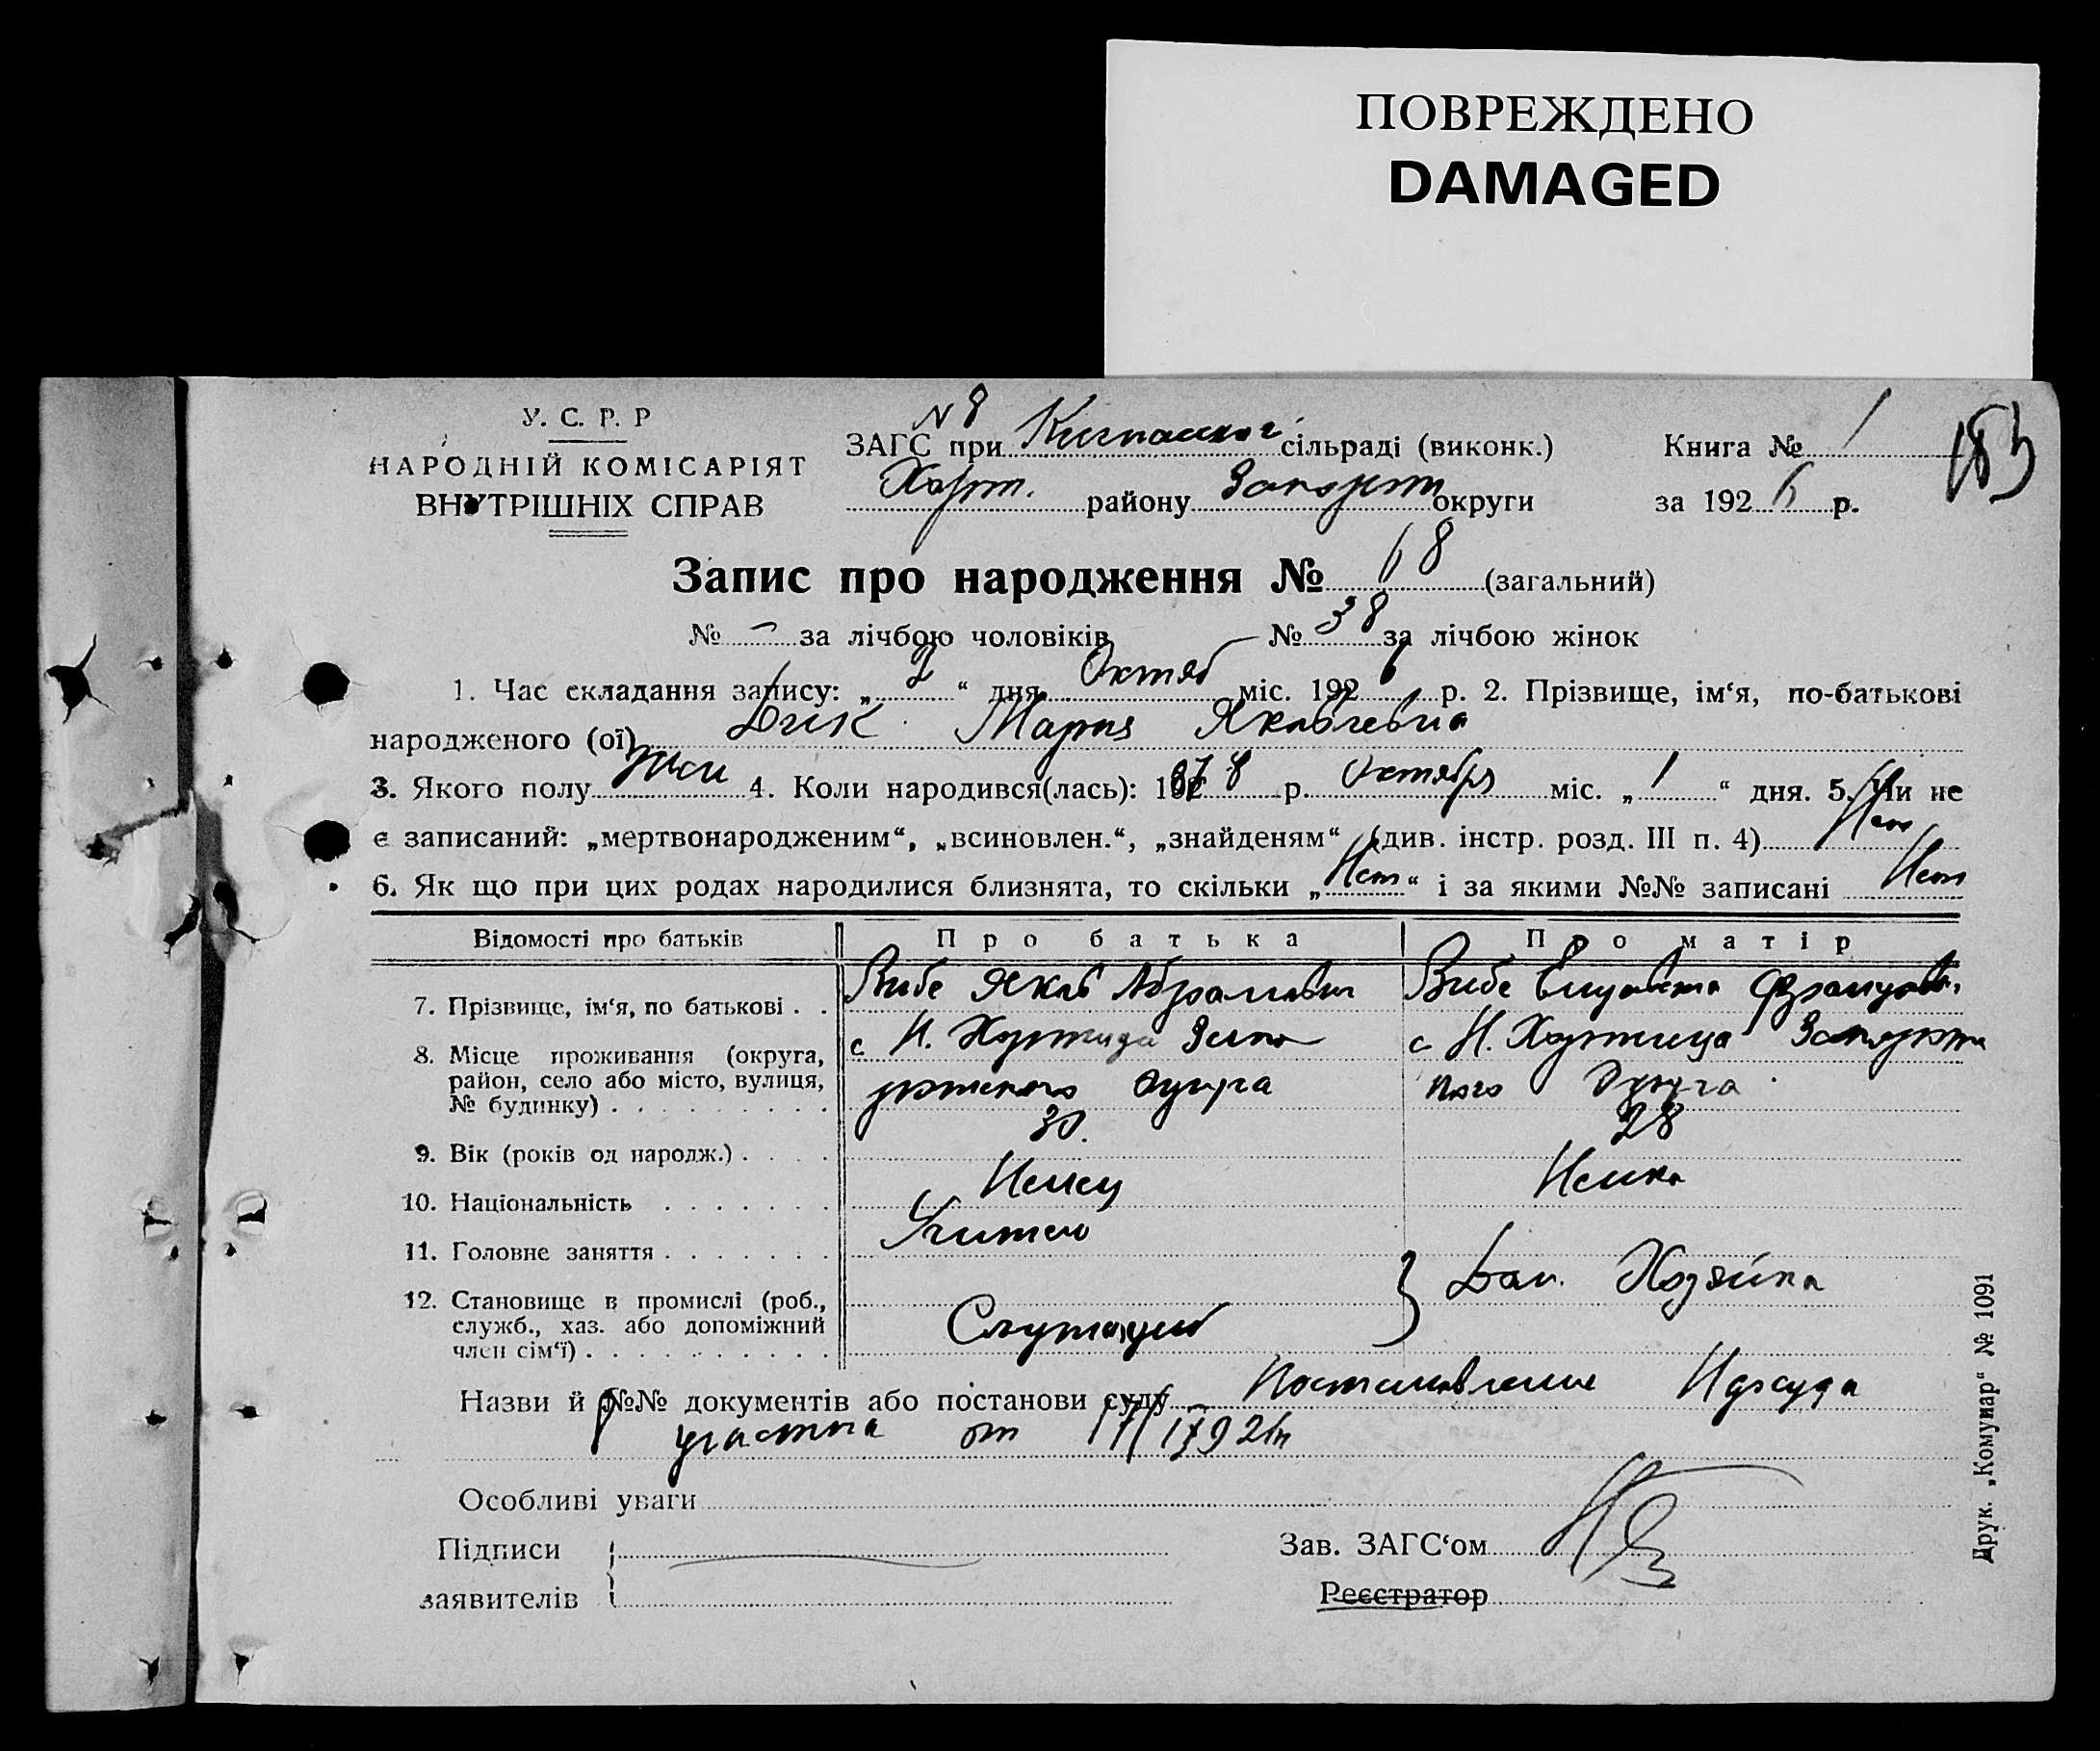 ПОВРЕЖДЕНО
DAMAGED
У. С. Р. Р
НАРОДНІЙ КОМІСАРІЯТ
ВНУТРІШНІХ СПРАВ
N 8
ЗАГС при сільраді (виконк.)
Хорт. району Запорожт округи
Книга № 1
183
за 192 6 р.
Запис про народження № 68 (загальний)
№ - за лічбою чоловіків № 38 за лічбою жінок
1. Час складання запису: „ 2 “ дня Октяб міс. 192 6 р. 2. Прізвище, ім‘я, по-батькові
народженого (ої) Дик Мария Яковлевна
3. Якого полу жен 4. Коли народився(лась): 1 р. Октября міс. „ 1 “ дня. 5. Чи не
є записаний: „мертвонародженим“, „всиновлен.“, „знайденям“ (див. інстр. розд. III п. 4) Нет
6. Як що при цих родах народилися близнята, то скільки „ Нет “ і за якими №№ записані Нет
Відомості про батьків Про батька Про матір
7. Прізвище, ім‘я, по батькові . . Вибе Яков Абрамович Вибе Елизавета Францовн.
8. Місце проживання (округа, район, село або місто, вулиця, № будинку) . . . . . . . . .
с Н. Хортица Запо
рожского округа
с Н. Хортица Запорожс
кого Округа
9. Вік (років од народж.) . . . . 30. 28
10. Національність . . . . . . . Немец Немка
11. Головне заняття . . . . . . . Учитель
12. Становище в промислі (роб., служб., хаз. або допоміжний член сім‘ї) . . . . . . . . . . Служащий
} Дом. Хозяйка
Назви й №№ документів або постанови суду Постановление Нарсуда
участка от 17/ 192 г
Особливі уваги
Підписи
заявителів
Зав. ЗАГС‘ом
Реєстратор
Друк. „Комунар“ № 1091